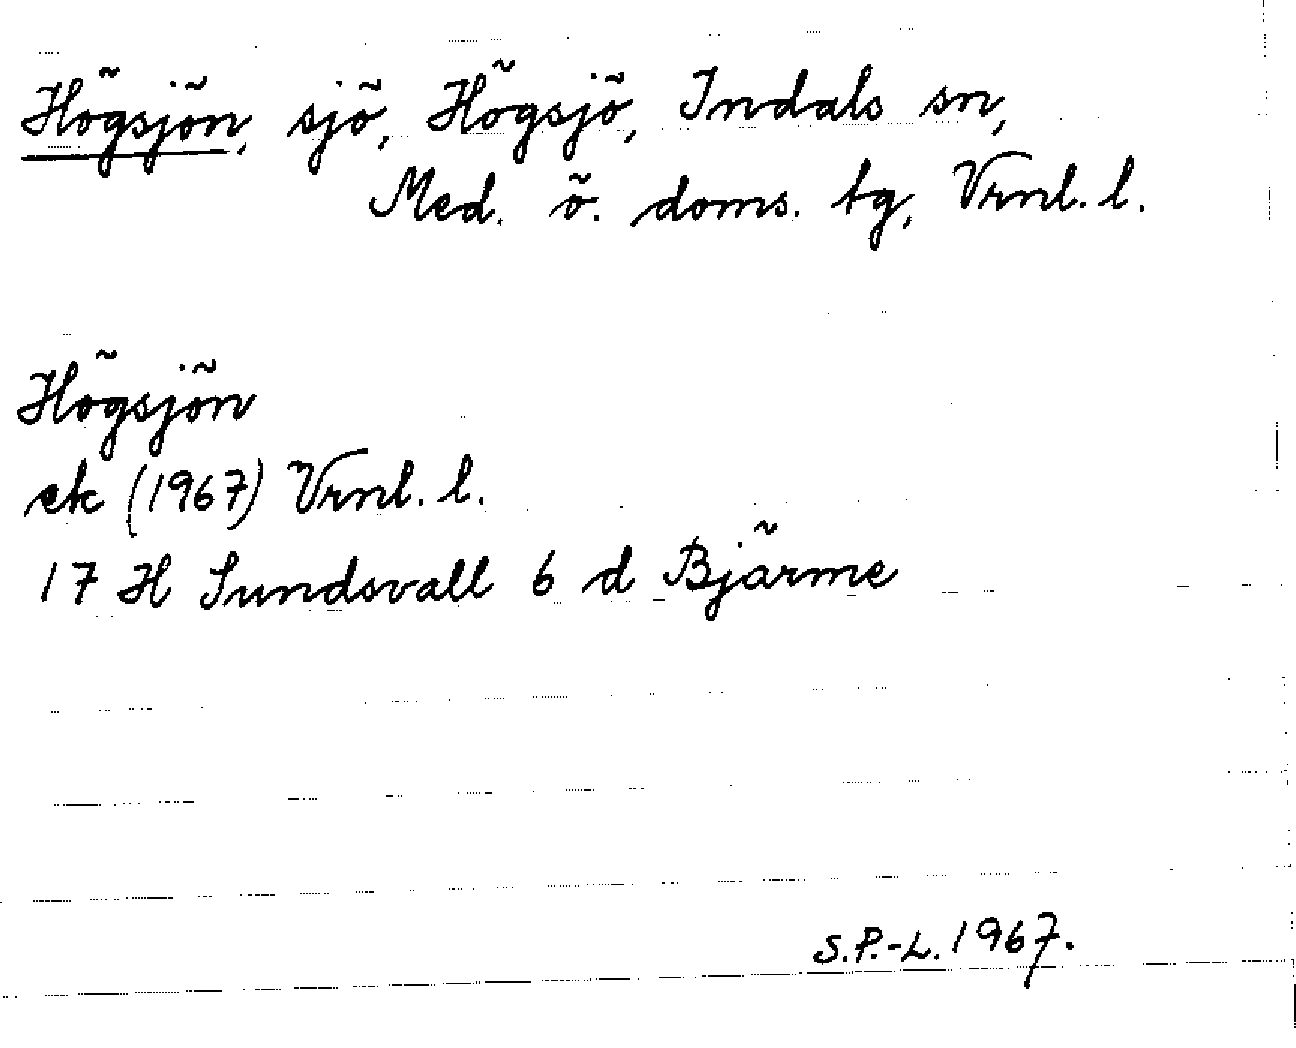 Högsjön, sjö, Högsjö, Indals sn,
Med. ö. doms. tg, Vrnl. l.
Högsjön
ek (1967) Vrnl. l.
17 H Sundsvall 6 d Bjärme
S.P.-L. 1967.